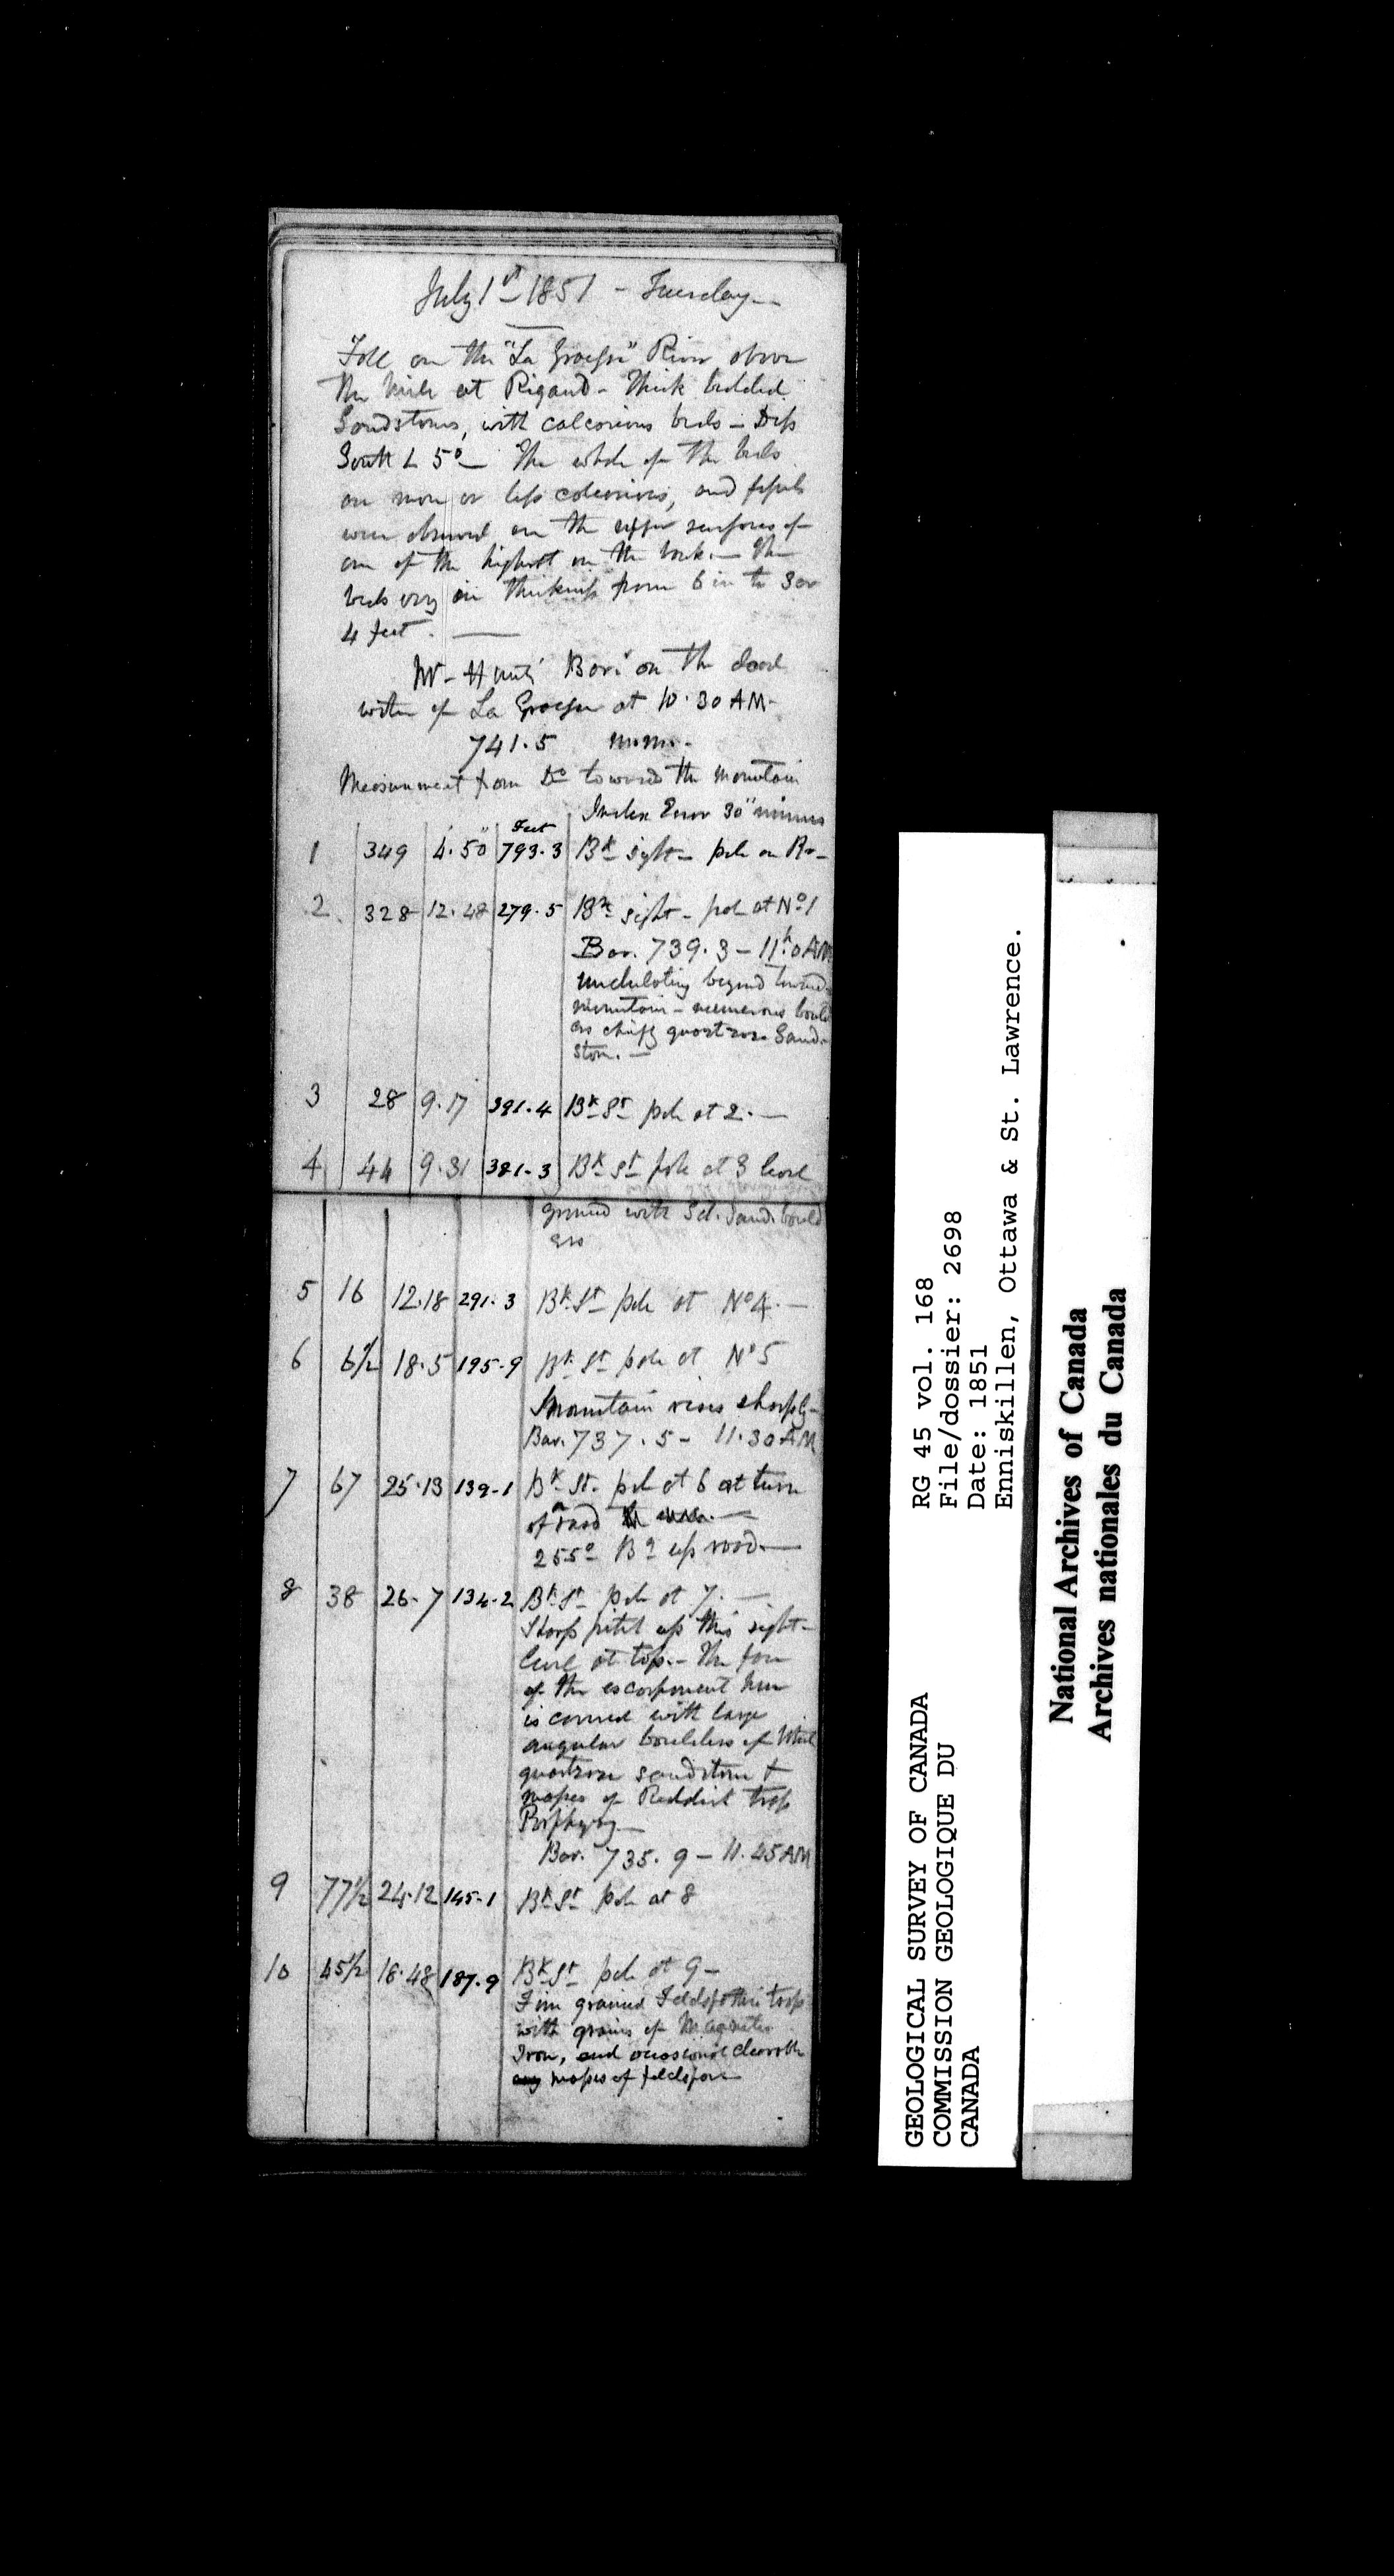 July 1st 1851 - Tuesday -
Fall on the "La Graisse" River above
the mile at Rigaud - Thick bedded
Sandstones, with calcarious beds - Dip
South L 5° - The whole of the beds
are more or less calcarious, and fossils
were observed on the upper surfaces of
one of the highest on the bank. - The
beds vary in thickness from 6 in to 3 or
4 feet. -
Mr - Hunts' Bar' on the dead
water of La Graisse at 10.30 AM -
741.5 m.m. -
Measurement from Do towards the mountain
Index Error 30" minus
Feet
1 349 4.50 793.3 Bk sight - pole on Rr -
2 328 12.48 279.5 Bk sight - pole at No 1
Bar. 739.3 - 11h.0 AM
undulating beyond towards
mountain - numerous bould
ers chiefly quartzose Sand-
stone. -
3 28 9.17 391.4 Bk St pole at 2. -
4 44 9.31 381.3 Bk St pole at 3 level
ground with Sand. bould
ers
5 16 12.18 291.3 Bk St pole at No 4. -
6 6 1/2 18.5 195.9 Bk St pole at No 5
Mountain rises sharply -
Bar. 737.5 - 11.30 AM
7 67 25.13 139.1 Bk St. pole at 6 at turn
of a road -
255° Bg up road -
8 38 26.7 134.2 Bk St pole at 7. -
Sharp pitch up this sight -
level at top. - The face
of the escarpment here
is covered with large
angular boulders of White
quartzose sandstone &
masses of Reddish trap
Porphyry -
Bar. 735.9 - 11.45 AM
9 77 1/2 24.12 145.1 Bk St pole at 8
10 45 1/2 18.48 187.9 Bk St pole at 9 -
Fine grained Feldspathic trap
with grains of Magnetic
Iron, and occasional cleavable
masses of feldspar
RG 45 vol. 168
File/dossier: 2698
Date: 1851
Enniskillen, Ottawa & St. Lawrence.
GEOLOGICAL SURVEY OF CANADA
COMMISSION GEOLOGIQUE DU
CANADA
National Archives of Canada
Archives nationales du Canada